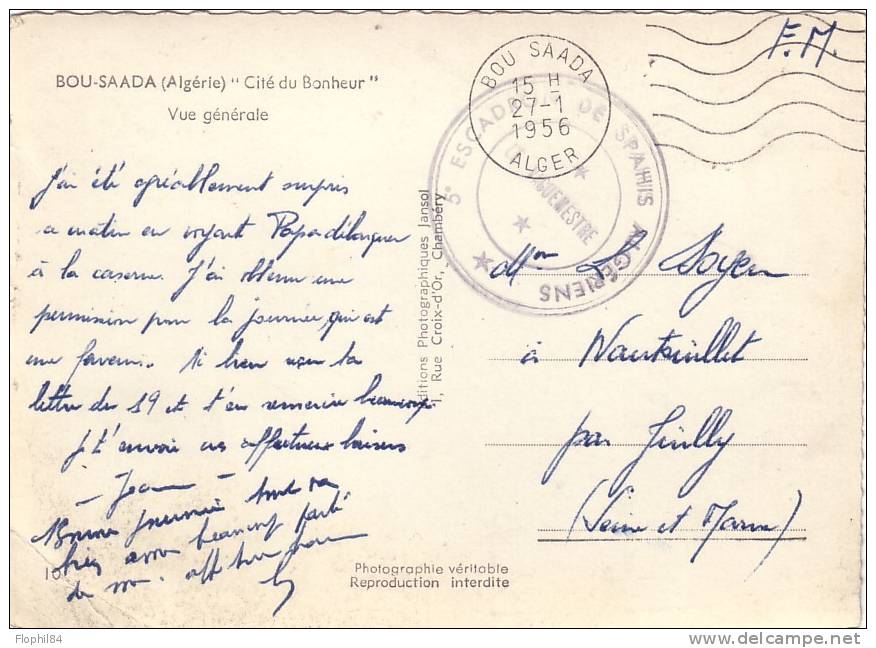 BOU-SAADA (Algérie) "Cité du Bonheur"
Vue générale
F.M.
BOU SAADA
15 H
27-1
1956
ALGER
5e ESCADRON DE SPAHIS ALGÉRIENS
LE VAGUEMESTRE
J'ai été agréablement surpris
ce matin en voyant Papa débarquer
à la caserne. J'ai obtenu une
permission pour la journée, qui est
une faveur.. Ai bien reçu ta
lettre du 19 et t'en remercie beaucoup.
Je t'envoie ces affectueux baisers
- Jean -
Bonne journée tout va
bien avons beaucoup parlé
de
Editions Photographiques Jansol
1, Rue Croix-d'Or, Chambéry
Mon L. Soyer
à Nantouillet
par Juilly
(Seine et Marne)
10
Photographie véritable
Reproduction interdite
Flophil84
www.delcampe.net